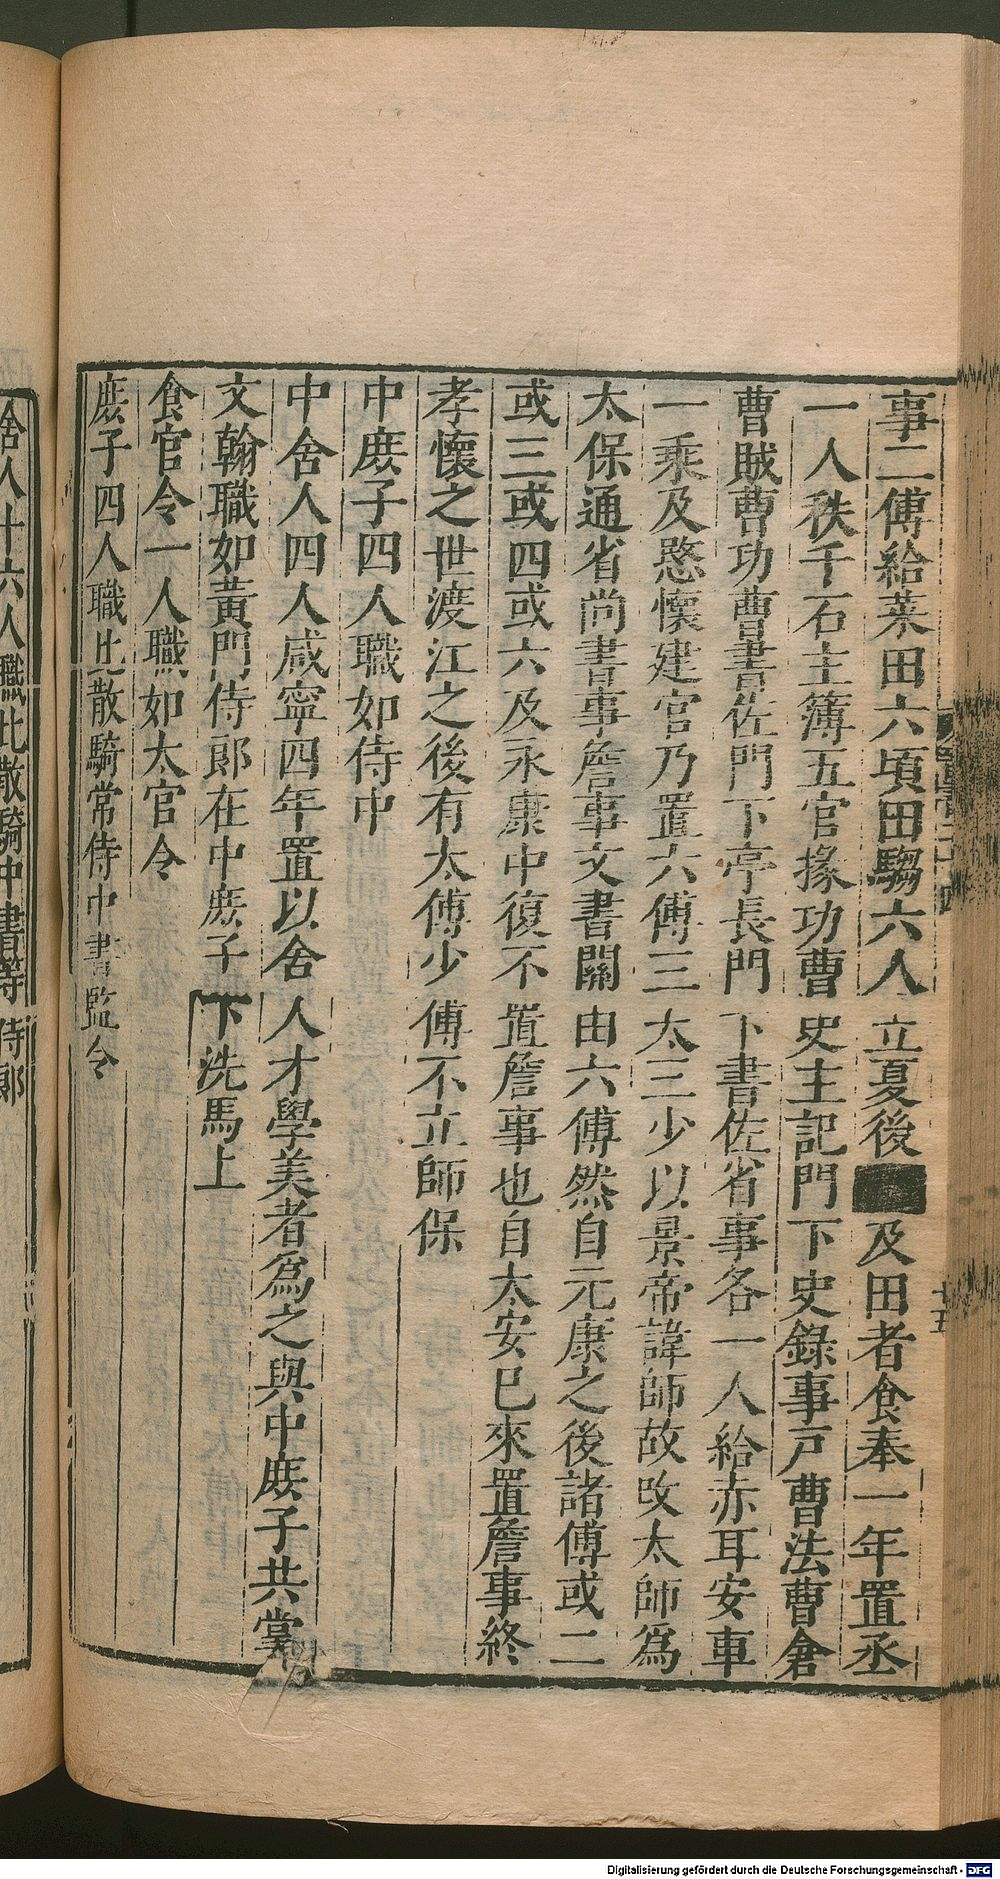 事二傅給菜田六頃田騶六人立夏後及田者食奉一年置丞
一人秩千石主簿五官掾功曹史主記門下史錄事戸曹法曹倉
曹賊曹功曹書佐門下亭長門下書佐省事各一人給赤耳安車
一乘及愍懷建官乃置六傅三太三少以景帝諱師故改太師爲
太保通省尚書事詹事文書關由六傅然自元康之後諸傅或二
或三或四或六及永康中復不置詹事也自太安已來置詹事終
孝懷之世渡江之後有太傅少傅不立師保
中庶子四人職如侍中
中舍人四人咸寧四年置以舍人才學美者爲之與中庶子共掌
文翰職如黃門侍郎在中庶子下洗馬上
食官令一人職如太官令
庶子四人職比散騎常侍中書監令
舍人十六人職比散騎中書等侍郎
Digitalisierung gefördert durch die Deutsche Forschungsgemeinschaft - DFG